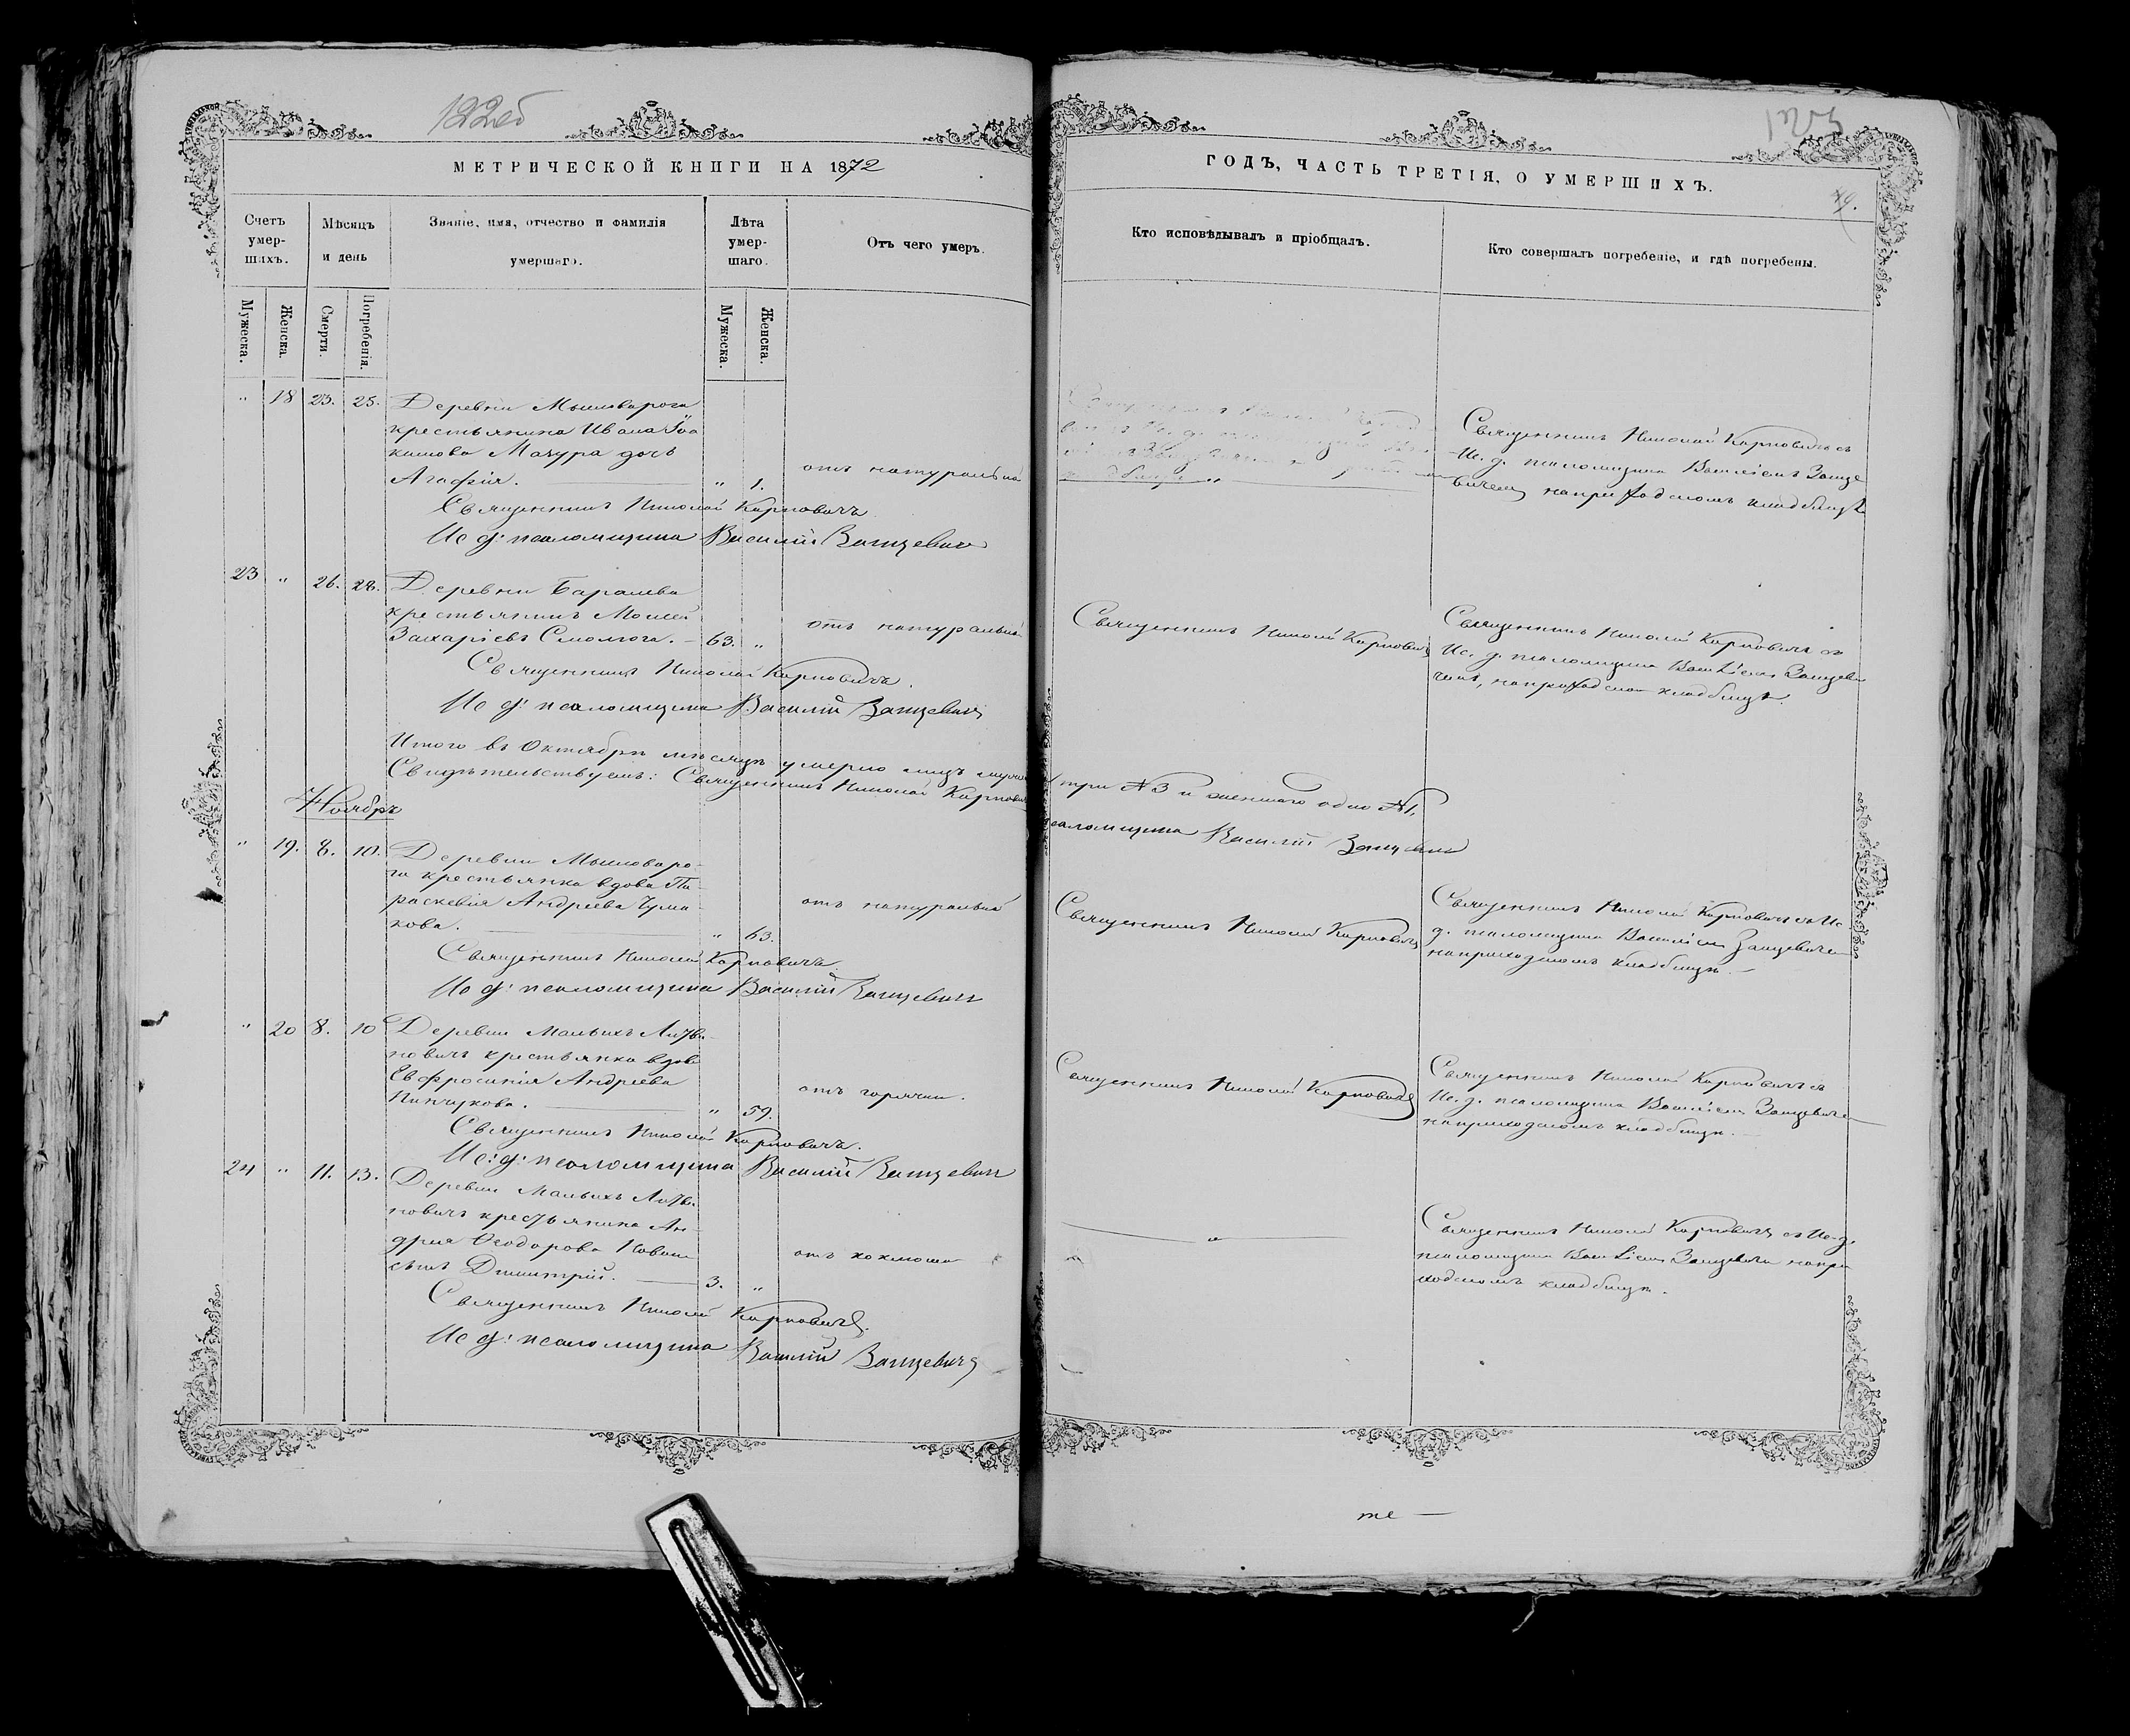 122об
МЕТРИЧЕСКОЙ КНИГИ НА 1872
Счетъ умер-шихъ.
Мѣсяцъ и день
Званіе, имя, отчество и фамилія умершаго.
Лѣта умер-шаго.
Отъ чего умеръ.
Мужеска.
Женска.
Смерти.
Погребенія.
Мужеска.
Женска.
" 18 23. 25. Деревни Мышоварога
крестьянина Ивана Іоа
кимова Мазура дочь
Агафія. " 1. отъ натуральной
Священникъ Николай Карповичъ
Ис д: псаломщика Василій
23 " 26. 28. Деревни
крестьянинъ Моисей
Захаріевъ Смолюга. 63. " отъ натуральной
Священникъ Николай Карповичъ.
Ис д: псаломщика Василій
Итого въ Октябрѣ мѣсяцѣ умерло лицъ
Свидѣтельствуемъ: Священникъ Николай Карповичъ
Ноябрь
" 19. 8. 10. Деревни Мышоваро-
га крестьянка вдова Па-
раскевія Андреева Чума-
кова. " 63. отъ натуральной
Священникъ Николай Карповичъ
Ис д: псаломщика Василій
" 20 8. 10 Деревни Малыхъ Литви-
новичъ крестьянка вдова
Евфросинія Андреева
Пинчукова. " 59. отъ горячки.
Священникъ Николай Карповичъ.
Ис: д: псаломщика Василій
24 " 11. 13. Деревни Малыхъ Литви-
новичъ крестьянина Ан-
дрея Ѳеодорова
сынъ Димитрій. 3. " отъ коклюша
Священникъ Николай Карповичъ.
Ис д: псаломщика Василій
123
ГОДЪ, ЧАСТЬ ТРЕТІЯ, О УМЕРШИХЪ.
Кто исповѣдывалъ и пріобщалъ.
Кто совершалъ погребеніе, и гдѣ погребены.
Священникъ Николай Карповичъ съ
Ис. д. псаломщика Василіемъ
на приходскомъ кладбищѣ
Священникъ Николай Карповичъ
Священникъ Николай Карповичъ съ
Ис. д. псаломщика Василіемъ
на приходскомъ кладбищѣ.
три №3 и женскаго одно №1,
псаломщика Василій
Священникъ Николай Карповичъ
Священникъ Николай Карповичъ съ Ис.
д. псаломщика Василіемъ
на приходскомъ кладбищѣ.
Священникъ Николай Карповичъ
Священникъ Николай Карповичъ съ
Ис. д. псаломщика Василіемъ
на приходскомъ кладбищѣ.
Священникъ Николай Карповичъ съ Ис. д.
псаломщика Василіемъ на при
ходскомъ кладбищѣ.